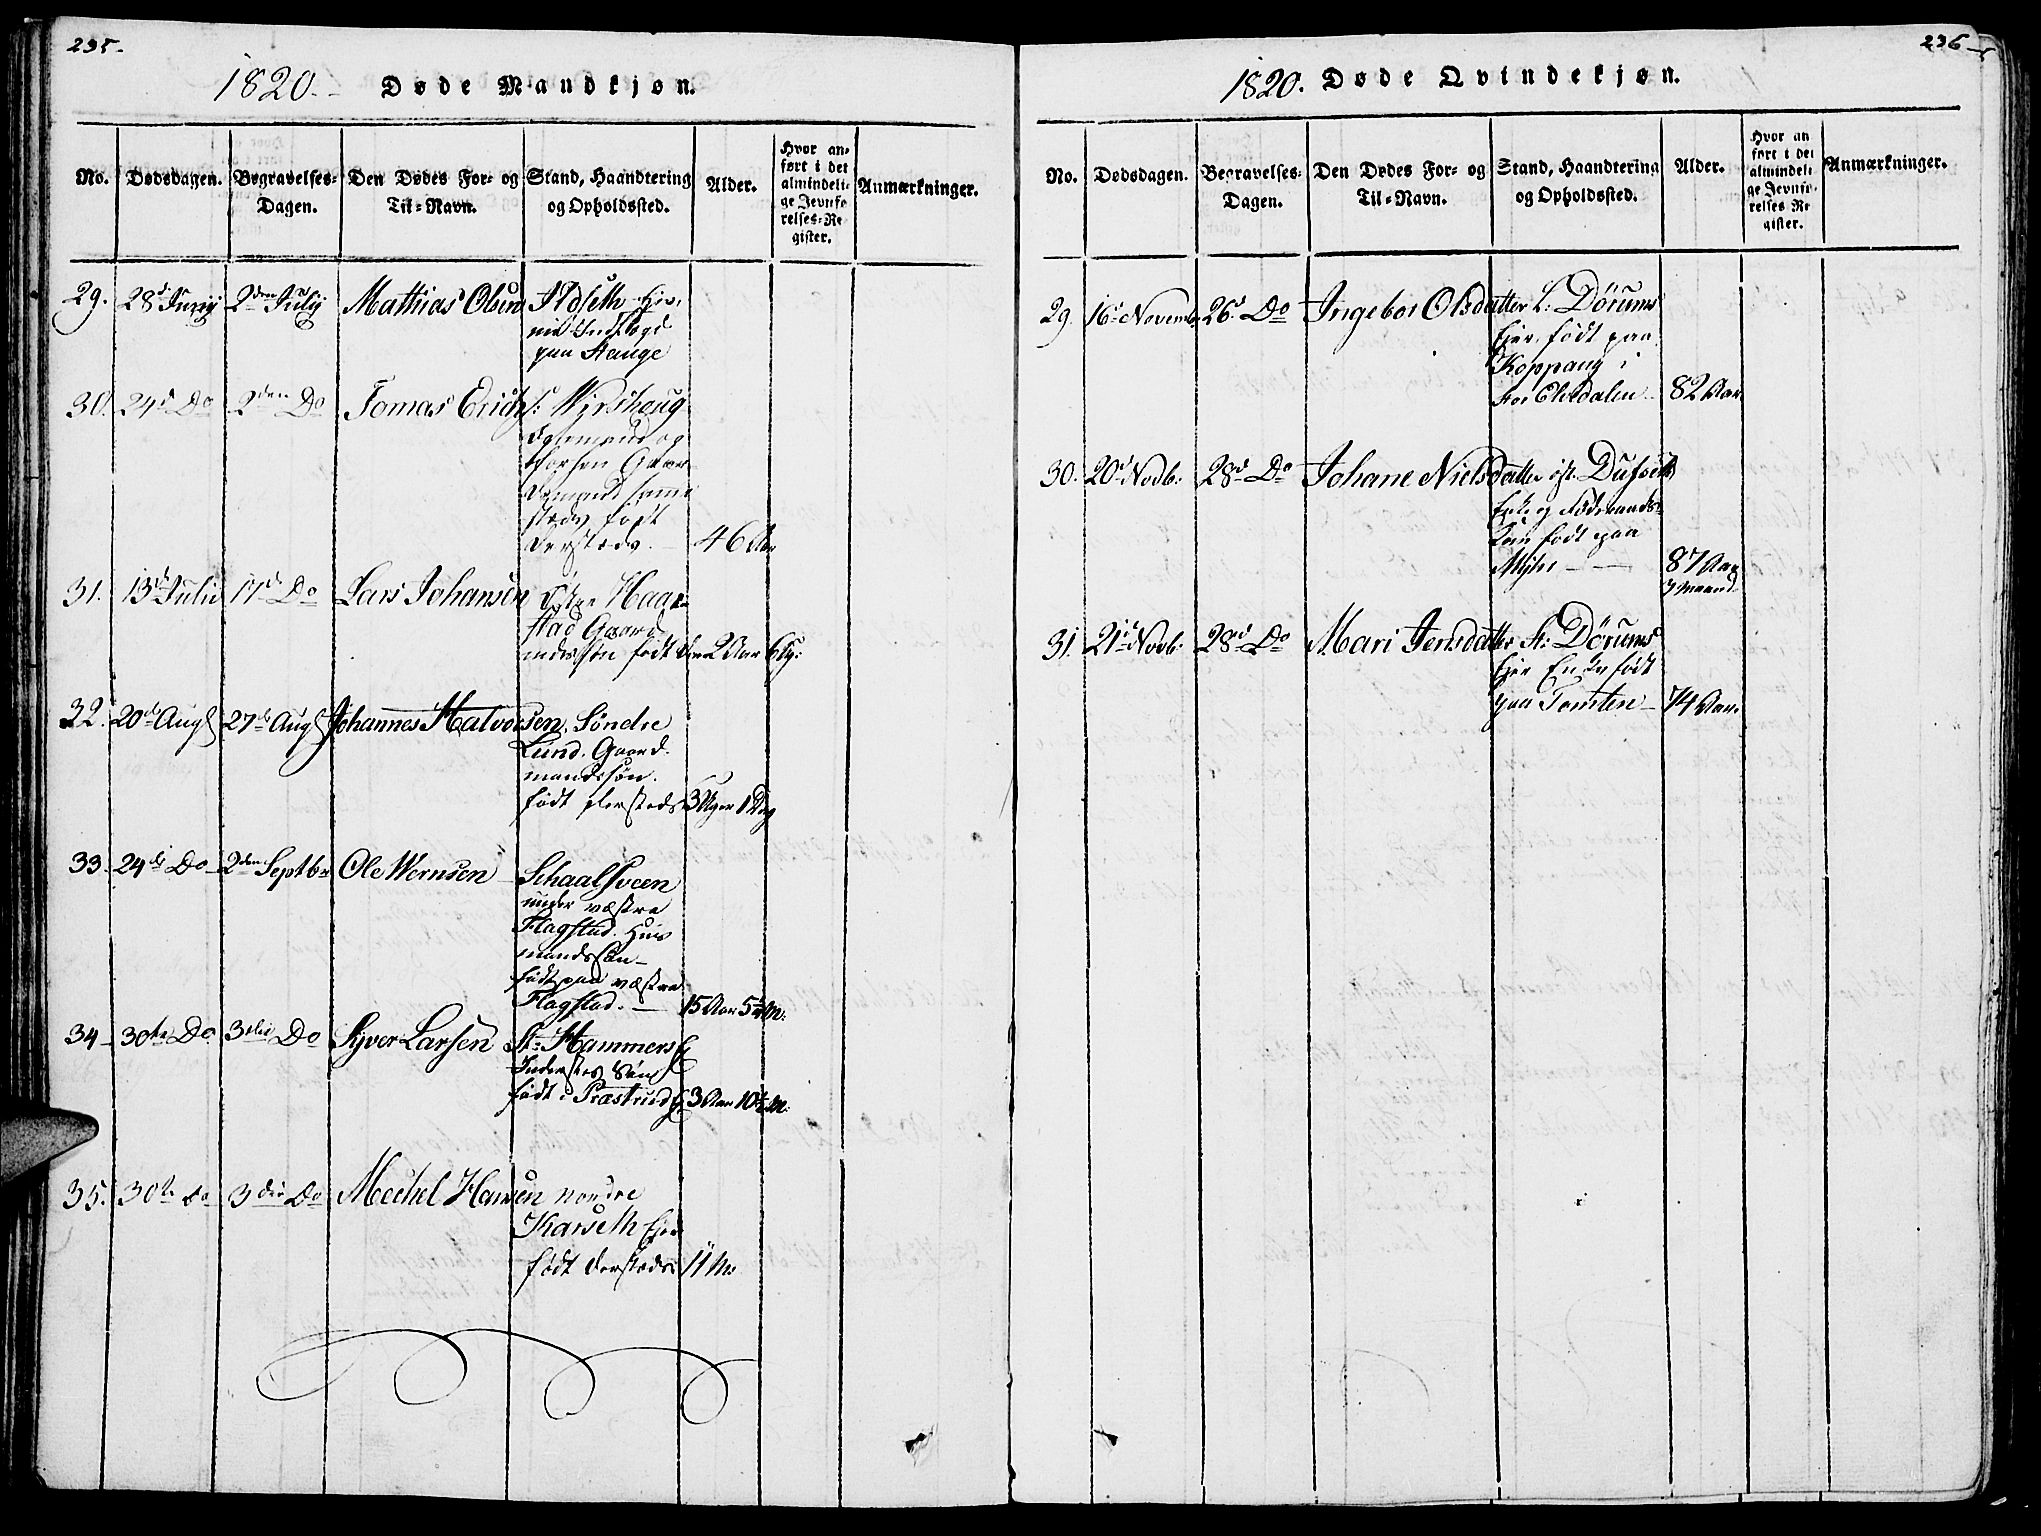 235.
1820. Døde Mandkjøn.
No.
Dødsdagen.
Begravelses-
Dagen.
Den Dødes For- og
Til-Navn.
Stand, Haandtering
og Opholdssted.
Alder.
Hvor an-
ført i det
almindeli-
ge Jevnfø
relses-Re-
gister.
Anmærkninger.
29. 28d Junij 2den Julij Mathias Olsen Ildseth Eje,
paa Stange
30. 24d Do 2den Do Tomas Erichs:
Gaar
født
Dersteds. 46 Aar
31. 13d Julii 17d Do Lars Johansen Østre Haar-
stad Gaard
mandssøn født der 2 Aar 6 Ug:
32. 20d Aug 27d Aug Johannes Halvorsen, Søndre
Lund. Gaard-
mandssøn.
født dersteds 3 Uger 1 Dag
33. 24d Do 2den Septbr Ole Wernsen Schaalsveen
under væstre
Flagstad. Huus
mandssøn
født paa væstre
Flagstad. 15 Aar 5½ M:
34 30te Do 3die Do Syver Larsen St: Hammers E
Inderstes Søn
født i Præstrud E 3 Aar 10½ M:
35. 30te Do 3die Do Mechel Hansen nordre
Karseth Ejer
født dersteds 11 M:
236
1820. Døde Qvindekjøn.
No.
Dødsdagen.
Begravelses-
Dagen.
Den Dødes For- og
Til-Navn.
Stand, Haandtering
og Opholdssted.
Alder.
Hvor an
ført i det
almindeli
ge Jevnfø-
relses Re
gister.
Anmærkninger.
29. 16d Novemb. 26d Do Ingebor Olsdatter L: Dørums
Ejer, født paa
Koppang i
Stor Elvedalen 82 Aar
30. 20d Novb: 28d Do Johane Nielsdatter øst. Dufseth
Enke og Føderaads-
Kone født paa
87 Aar
7 Maand
31. 21d Novb: 28d Do Mari Jensdatter St: Dørums
Ejer Enke født
paa Tomten 74 Aar.